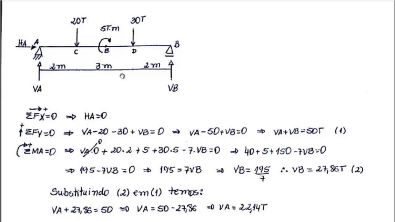 20T 30T
5T.m
HA A C B D B
2m 3m 2m
VA VB
ΣFX=0 ⇒ HA=0
ΣFV=0 ⇒ VA-20-30+VB=0 ⇒ VA-50+VB=0 ⇒ VA+VB=50T (1)
ΣMA=0 ⇒ VA/0+20.2+5+30.5-7.VB=0 ⇒ 40+5+150-7VB=0 ⇒
⇒ 195-7VB=0 ⇒ 195=7VB ⇒ VB=195/7 ∴ VB=27,86T (2)
Substituindo (2) em (1) temos:
VA+27,86=50 ⇒ VA=50-27,86 ⇒ VA=22,14T